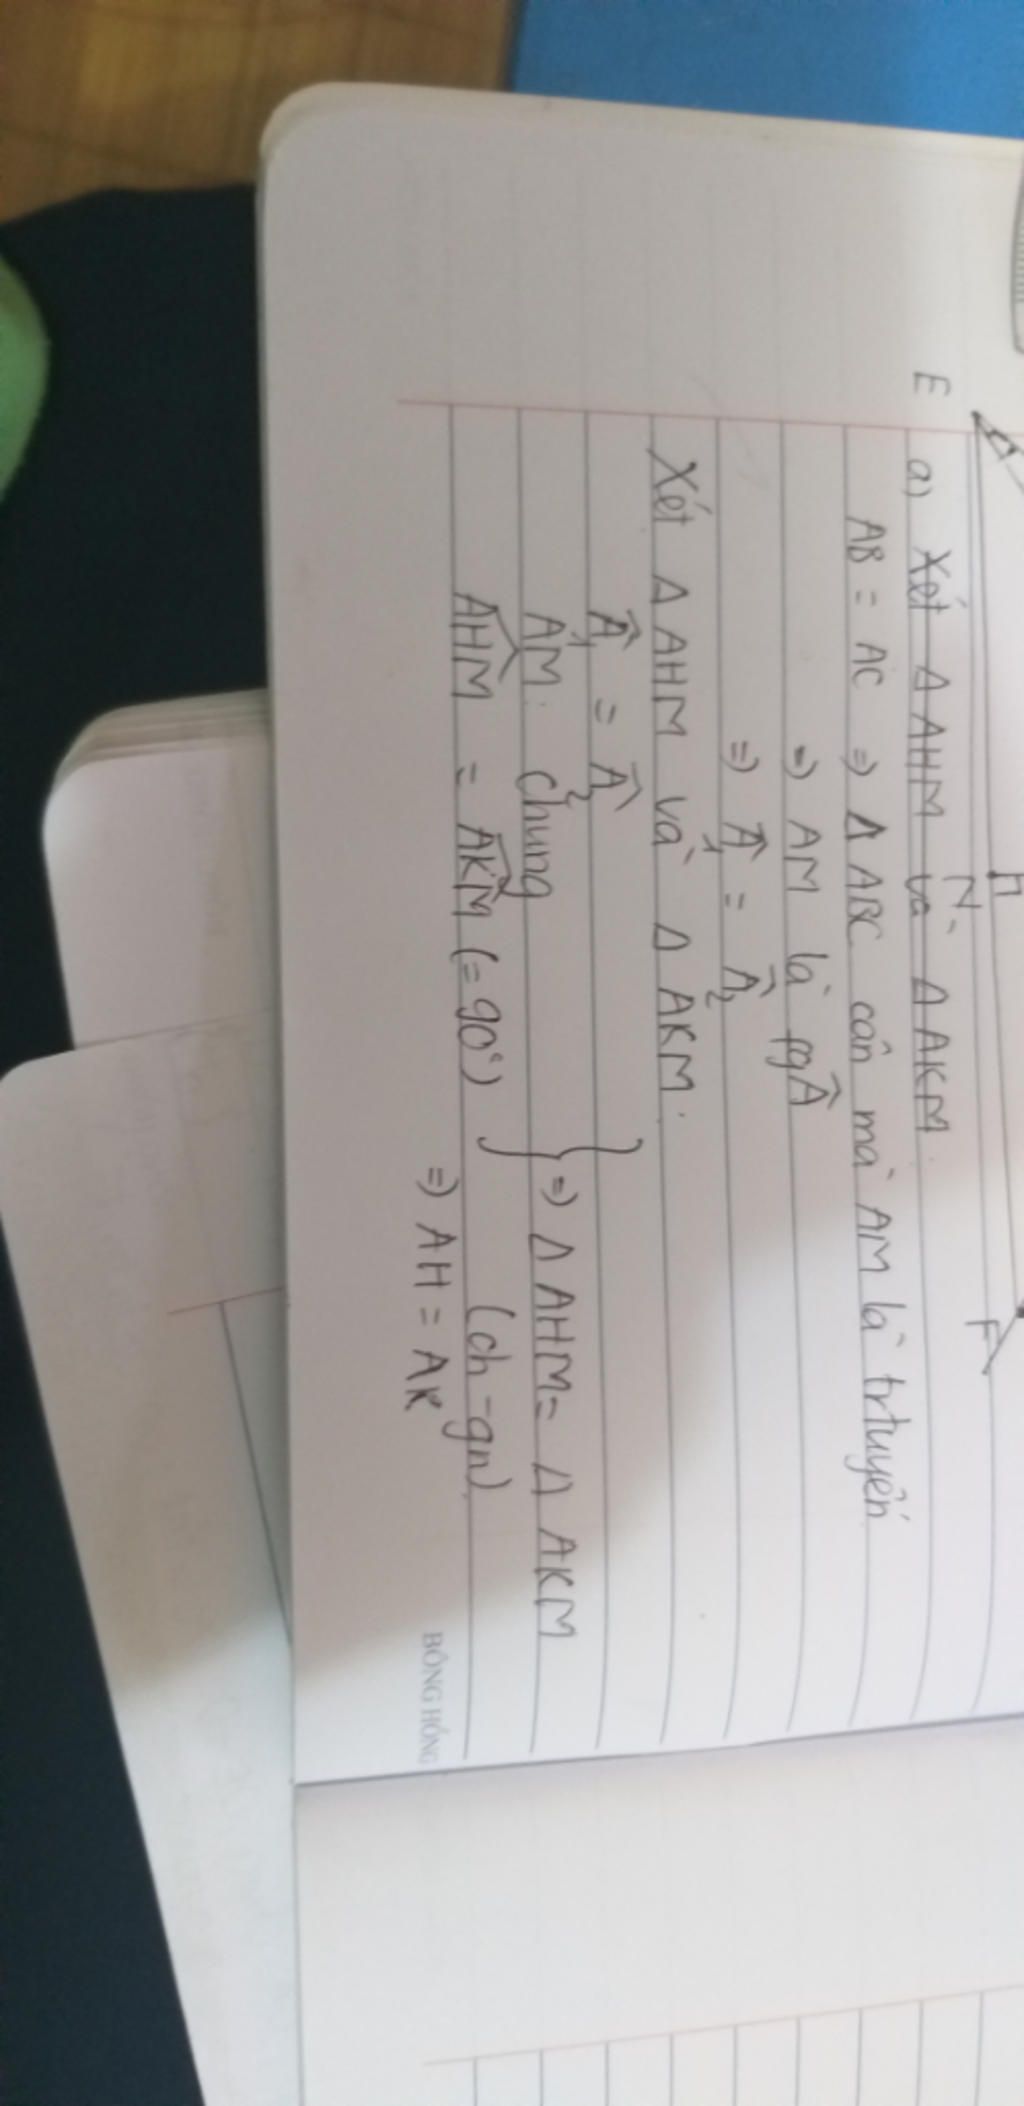 E
H
N
F
a) Xét Δ AHM và Δ AKM.
AB = AC => Δ ABC cân mà AM là trtuyến
=> AM là pgÂ
=> Â1 = Â2
Xét Δ AHM và Δ AKM.
Â1 = Â2
AM: chung
AHM = AKM (= 90°)
=> Δ AHM = Δ AKM
(ch - gn).
=> AH = AK
BÔNG HỒNG